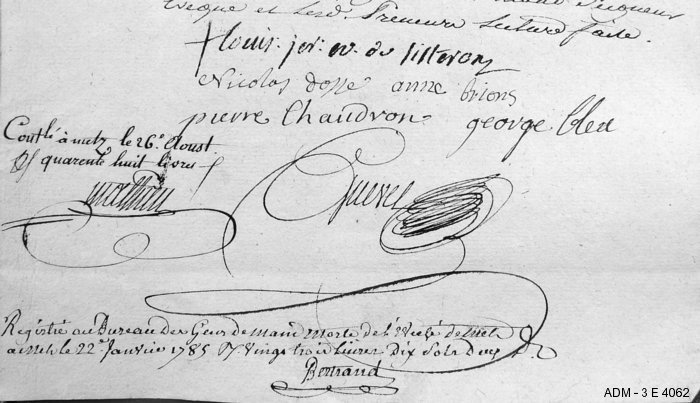 Eveque et lesd. Preneurs lecture faite.
+ louis. jos. ev. de sisteron
Nicolas dosse anne brions
pierre Chaudron george bled
Contlé à metz le 26e Aoust
quarente huit livres
mathieu
Guerel
Registré au Bureau des Gens de main morte de l'Evêché de Metz
à Metz le 22e Janvier 1785 Vingt trois Livres Dix Sols
Bertrand
ADM - 3 E 4062